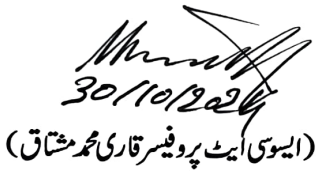 30/10/2024
(ایسوسی ایٹ پروفیسر قاری محمد مشتاق)